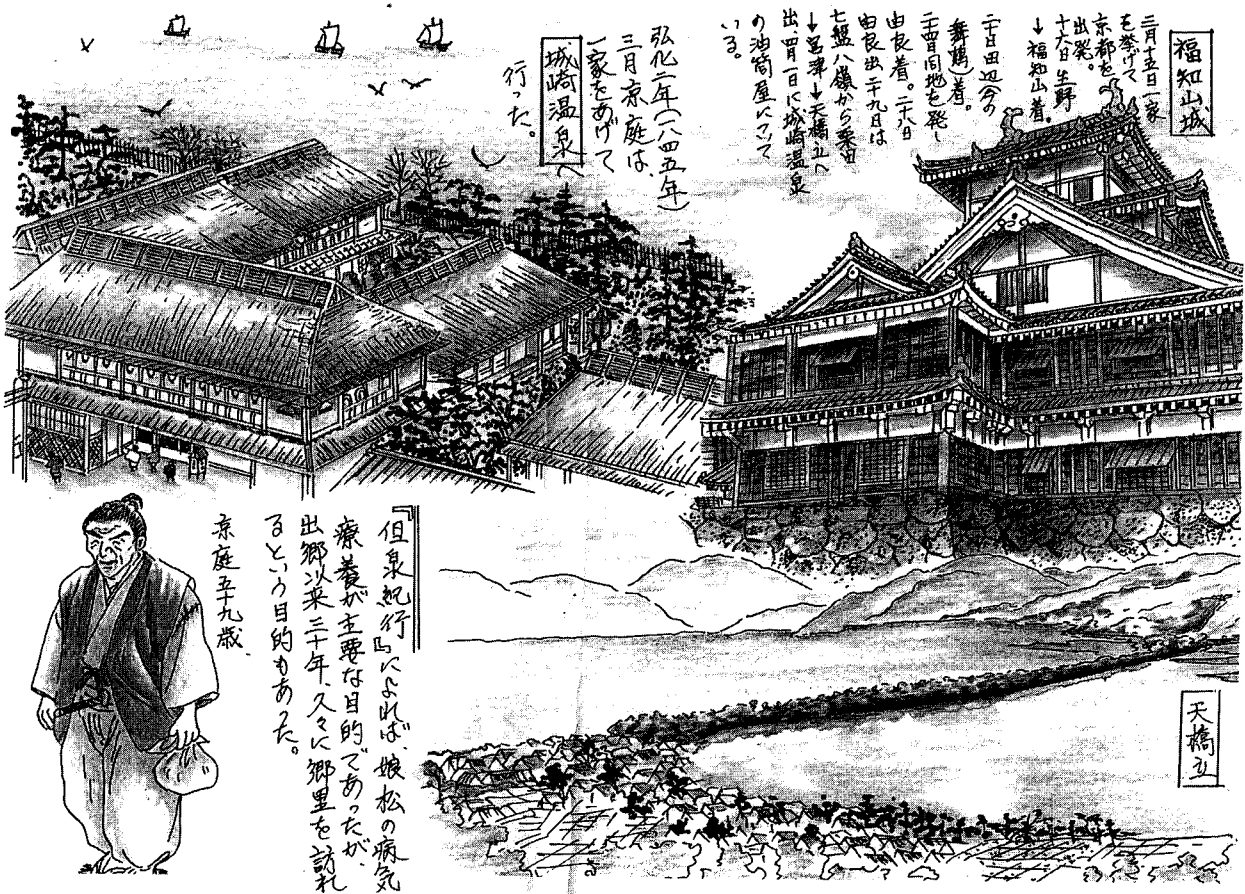 福知山城
三月十五日一家
を挙げて
京都を
出発。
十六日生野
↓福知山着。
二十日田辺(今の
舞鶴)着。
二十四日同地を発し
由良着。二十八日
由良出二十九日は
七盤八嶺から栗田
↓宮津↓天橋立へ
出、四月一日に城崎温泉
の油筒屋について
いる。
弘化二年(一八四五年)
三月京庭は、
一家をあげて
城崎温泉へ
行った。
『但泉紀行』によれば、娘松の病気
療養が主要な目的であったが、
出郷以来三十年、久々に郷里を訪れ
るという目的もあった。
京庭五十九歳、
天橋立